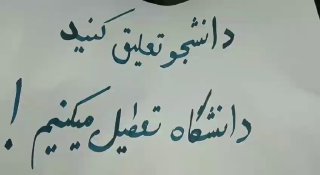 دانشجو تعلیق کنید
دانشگاه تعطیل میکنیم !